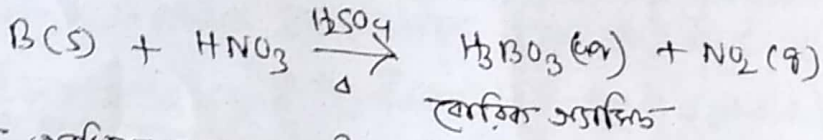 B(s) + HNO₃ \xrightarrow[Δ]{H₂SO₄} H₃BO₃(aq) + NO₂(g)
বোরিক অ্যাসিড